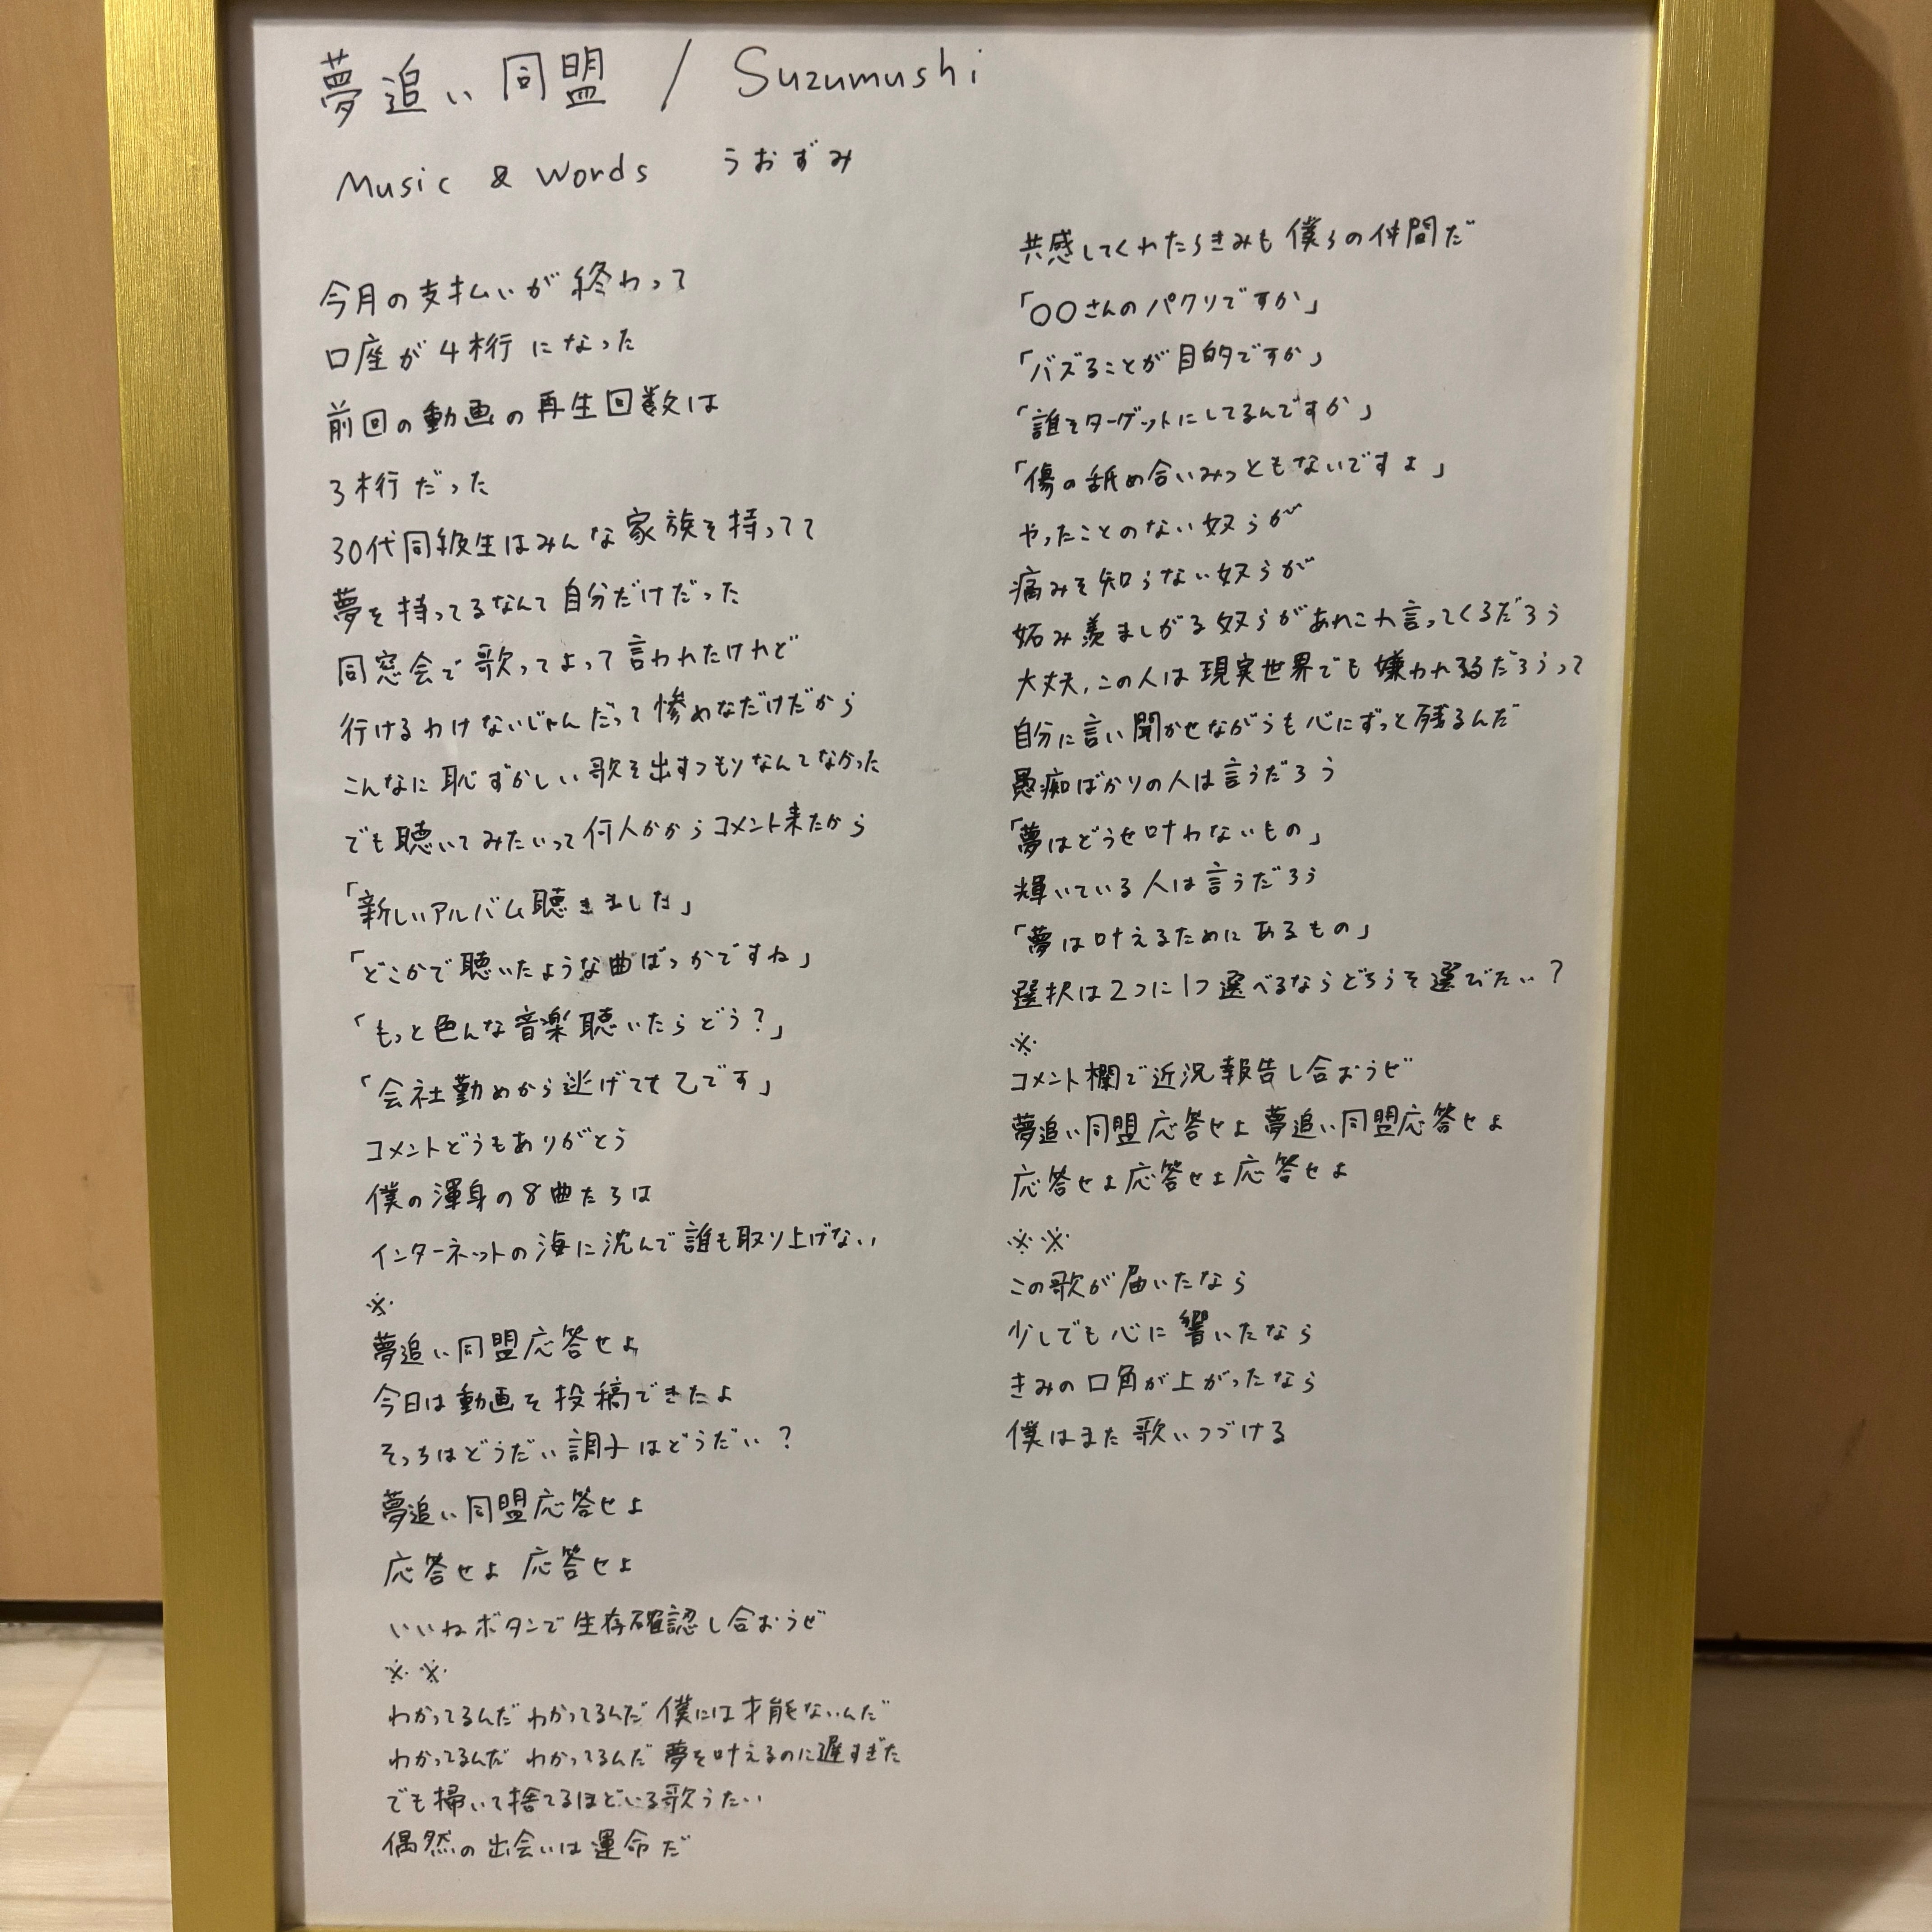 夢追い同盟 / Suzumushi
Music & Words うおずみ
今月の支払いが終わって
口座が4桁になった
前回の動画の再生回数は
3桁だった
30代同級生はみんな家族を持ってて
夢を持ってるなんて自分だけだった
同窓会で歌ってよって言われたけれど
行けるわけないじゃんだって惨めなだけだから
こんなに恥ずかしい歌を出すつもりなんてなかった
でも聴いてみたいって何人かからコメント来たから
「新しいアルバム聴きました」
「どこかで聴いたような曲ばっかですね」
「もっと色んな音楽聴いたらどう?」
「会社勤めから逃げてて乙です」
コメントどうもありがとう
僕の渾身の8曲たちは
インターネットの海に沈んで誰も取り上げない
※
夢追い同盟応答せよ
今日は動画を投稿できたよ
そっちはどうだい調子はどうだい?
夢追い同盟応答せよ
応答せよ 応答せよ
いいねボタンで生存確認し合おうぜ
※※
わかってるんだ わかってるんだ 僕には才能ないんだ
わかってるんだ わかってるんだ 夢を叶えるのに遅すぎた
でも掃いて捨てるほどいる歌うたい
偶然の出会いは運命だ
共感してくれたらきみも僕らの仲間だ
「〇〇さんのパクリですか」
「バズることが目的ですか」
「誰をターゲットにしてるんですか」
「傷の舐め合いみっともないですよ」
やったことのない奴らが
痛みを知らない奴らが
妬み羨ましがる奴らがあれこれ言ってくるだろう
大丈夫,この人は現実世界でも嫌われるだろうって
自分に言い聞かせながらも心にずっと残るんだ
愚痴ばかりの人は言うだろう
「夢はどうせ叶わないもの」
輝いている人は言うだろう
「夢は叶えるためにあるもの」
選択は2つに1つ選べるならどちらを選びたい?
※
コメント欄で近況報告し合おうぜ
夢追い同盟応答せよ 夢追い同盟応答せよ
応答せよ応答せよ応答せよ
※※
この歌が届いたなら
少しでも心に響いたなら
きみの口角が上がったなら
僕はまた歌いつづける